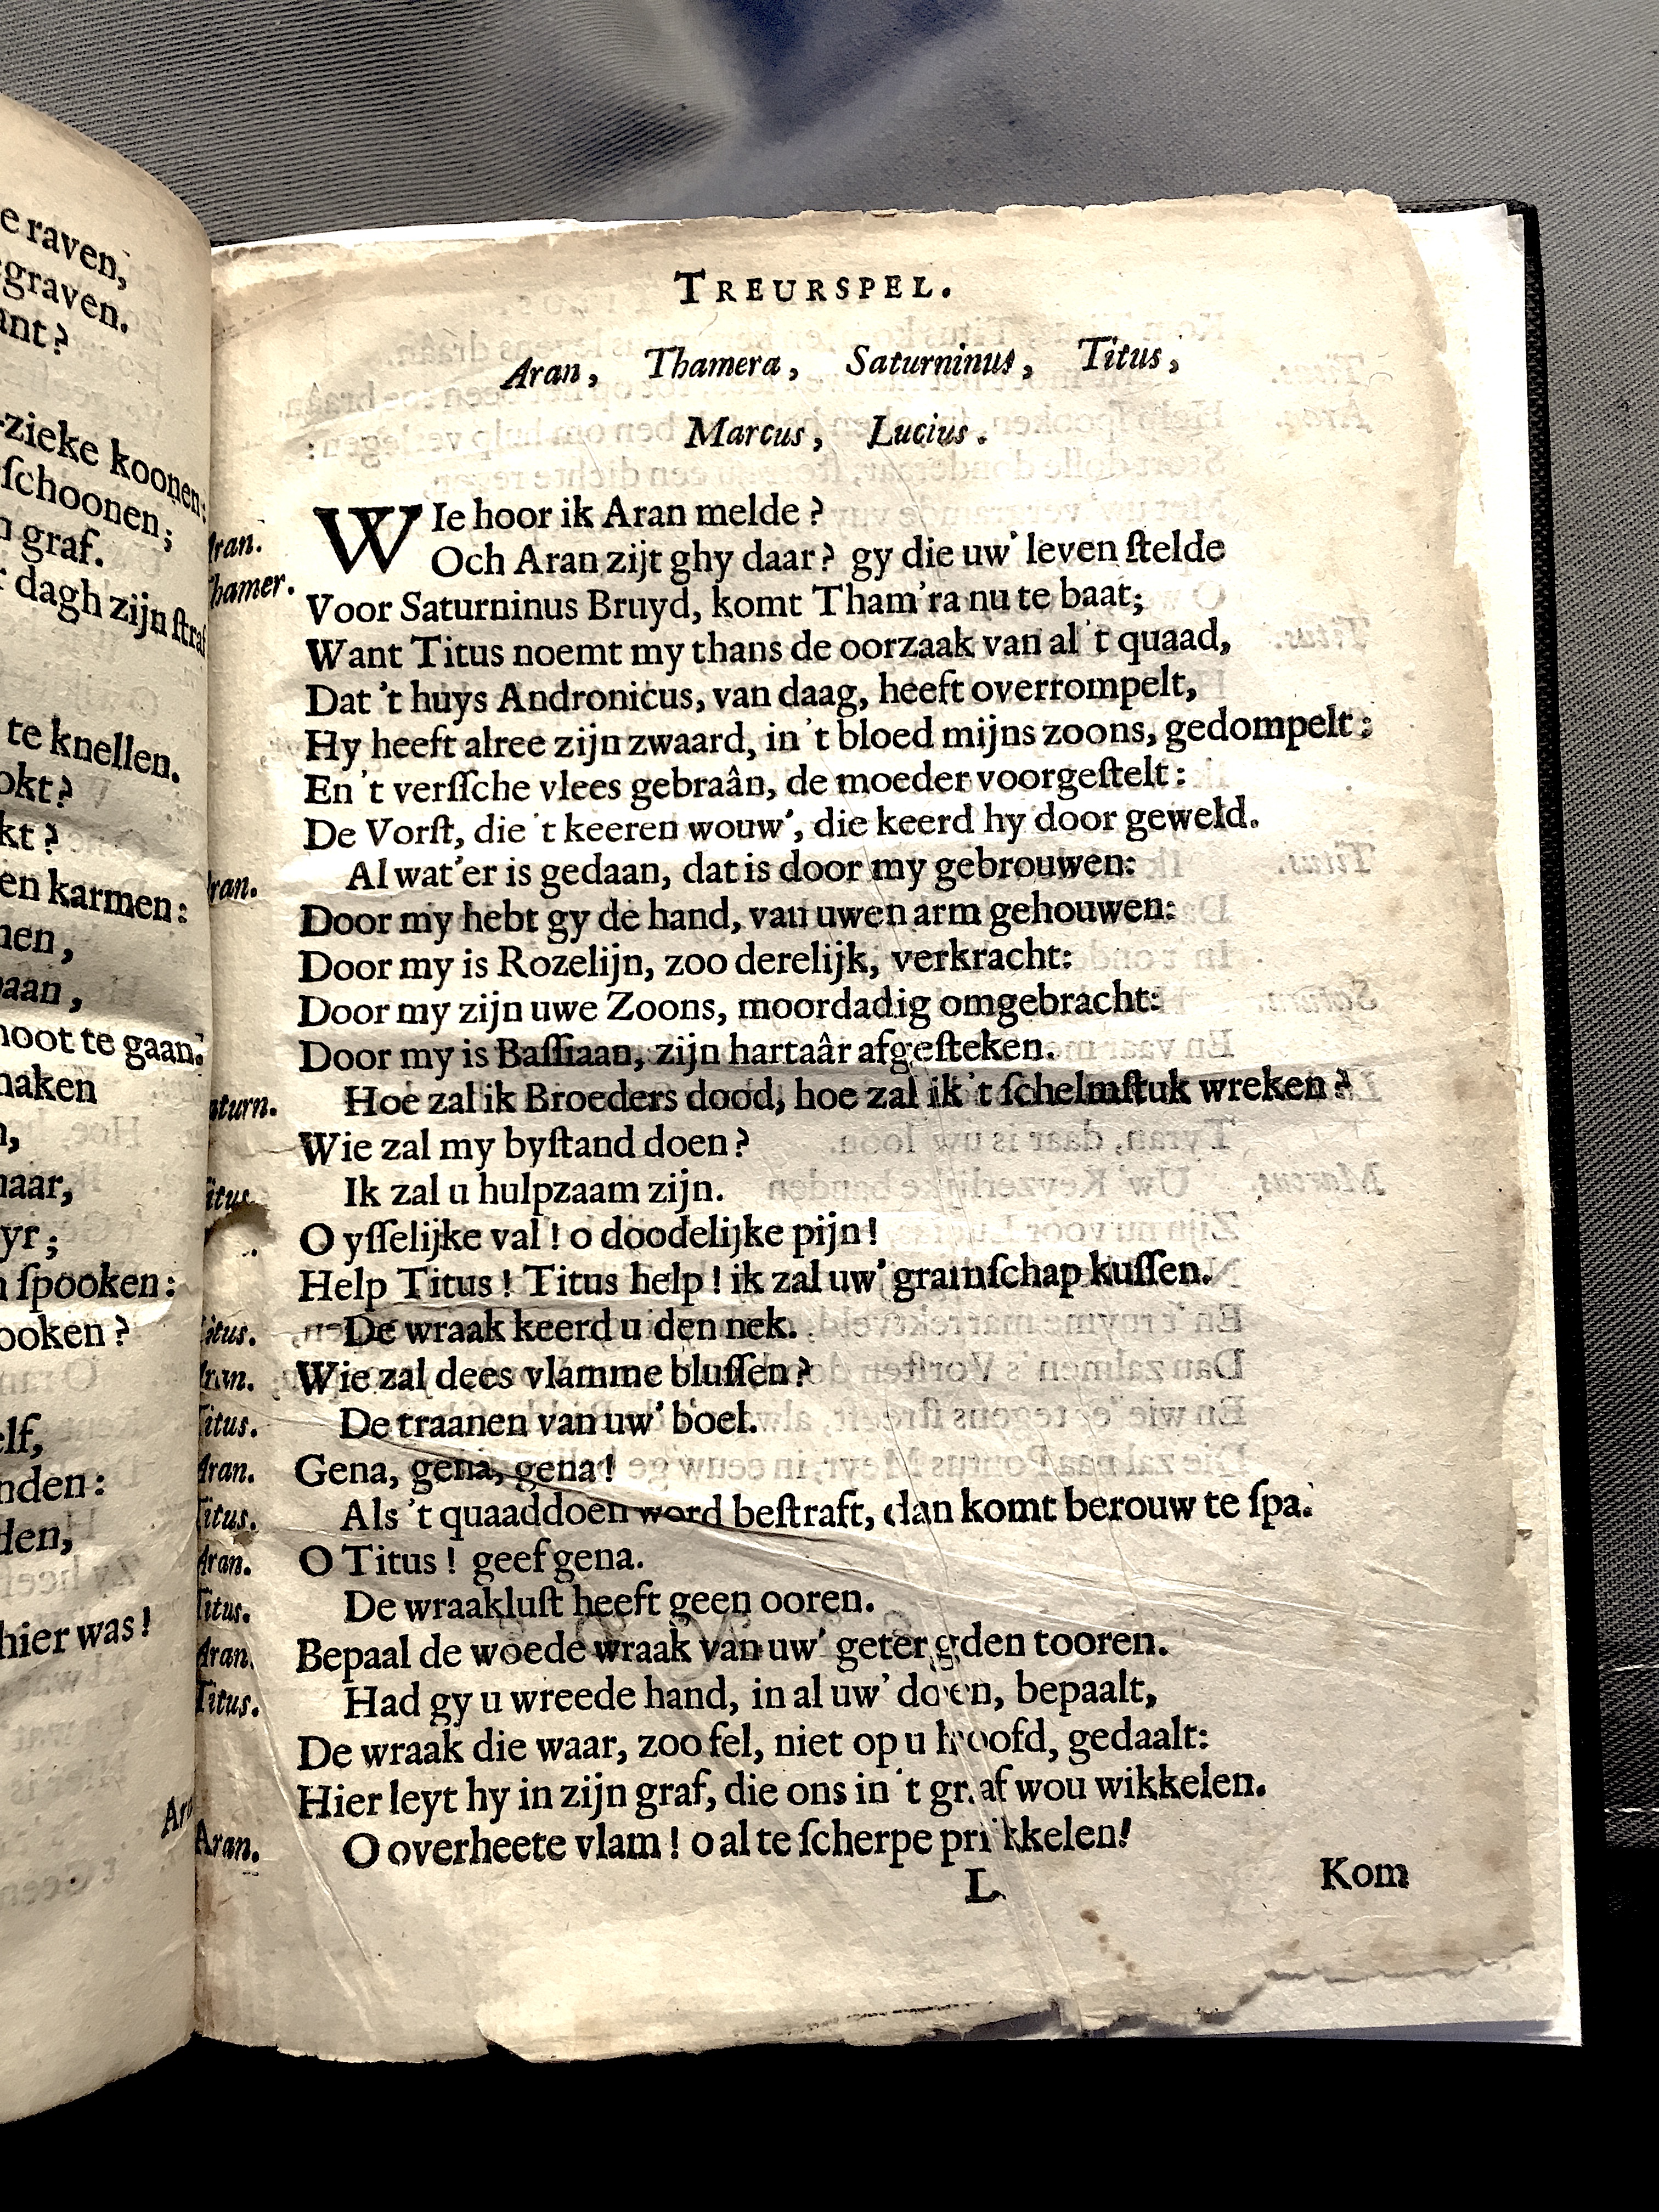 e raven,
graven.
ant?
-zieke koonen:
ſchoonen;
n graf.
r dagh zijn ſtraf
te knellen.
okt?
kt?
en karmen:
nen,
aan,
noot te gaan.
naken
n,
naar,
yr;
n ſpooken:
ooken?
elf,
nden:
den,
hier was!
TREURSPEL.
Aran, Thamera, Saturninus, Titus,
Marcus, Lucius.
Aran. WIe hoor ik Aran melde?
Thamer. Och Aran zijt ghy daar? gy die uw' leven ſtelde
Voor Saturninus Bruyd, komt Tham'ra nu te baat;
Want Titus noemt my thans de oorzaak van al 't quaad,
Dat 't huys Andronicus, van daag, heeft overrompelt,
Hy heeft alree zijn zwaard, in 't bloed mijns zoons, gedompelt:
En 't verſſche vlees gebraân, de moeder voorgeſtelt:
De Vorſt, die 't keeren wouw', die keerd hy door geweld.
Aran. Al wat'er is gedaan, dat is door my gebrouwen:
Door my hebt gy de hand, van uwen arm gehouwen:
Door my is Rozelijn, zoo derelijk, verkracht:
Door my zijn uwe Zoons, moordadig omgebracht:
Door my is Baſſiaan, zijn hartaâr afgeſteken.
Saturn. Hoe zal ik Broeders dood, hoe zal ik 't ſchelmſtuk wreken?
Wie zal my byſtand doen?
Titus. Ik zal u hulpzaam zijn.
O yſſelijke val! o doodelijke pijn!
Help Titus! Titus help! ik zal uw' gramſchap kuſſen.
Titus. De wraak keerd u den nek.
Aran. Wie zal dees vlamme bluſſen?
Titus. De traanen van uw' boel.
Aran. Gena, gena, gena!
Titus. Als 't quaaddoen word beſtraft, dan komt berouw te ſpa.
Aran. O Titus! geef gena.
Titus. De wraakluſt heeft geen ooren.
Aran. Bepaal de woede wraak van uw' getergden tooren.
Titus. Had gy u wreede hand, in al uw' doen, bepaalt,
De wraak die waar, zoo fel, niet op u hoofd, gedaalt:
Hier leyt hy in zijn graf, die ons in 't graf wou wikkelen.
Aran. O overheete vlam! o al te ſcherpe prikkelen!
L Kom